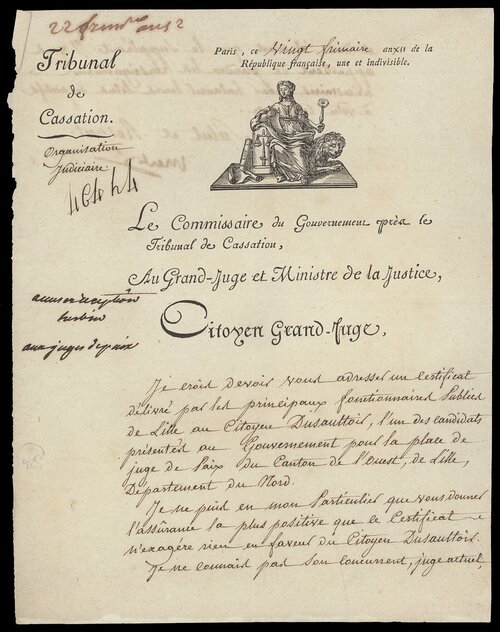 22
Paris, ce Vingt frimaire an XII de la
République française, une et indivisible.
Tribunal
de
Cassation.
Organisation
Judiciaire
46444
Le Commissaire du Gouvernement près le
Tribunal de Cassation,
Au Grand-Juge et Ministre de la Justice,
Citoyen Grand-Juge,
aux juges de paix
Je crois devoir vous adresser un Certificat
délivré par les principaux fonctionnaires publics
de Lille au Citoyen Dusaultoir, l'un des candidats
présentés au Gouvernement pour la place de
juge de Paix du Canton de l'Ouest, de Lille,
Département du Nord.
Je puis en mon particulier que vous donner
l'assûrance la plus positive que le Certificat
n'exagére rien en faveur du Citoyen Dusaultoir.
Je ne connais pas son concurrent, juge actuel,